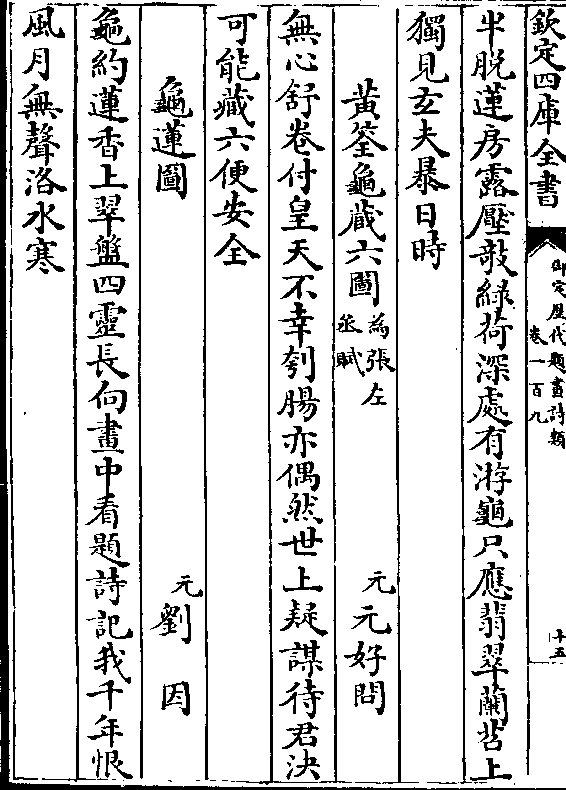 欽定四庫全書
御定歴代題畫詩類
卷一百九
十五
半脫蓮房露壓敧綠荷深處有游龜只應翡翠蘭苕上
獨見玄夫暴日時
黃筌龜藏六圖 為張左丞賦 元 元好問
無心舒卷付皇天不幸刳腸亦偶然世上疑謀待君決
可能藏六便安全
龜蓮圖 元 劉因
龜約蓮香上翠盤四靈長向畫中看題詩記我千年恨
風月無聲洛水寒